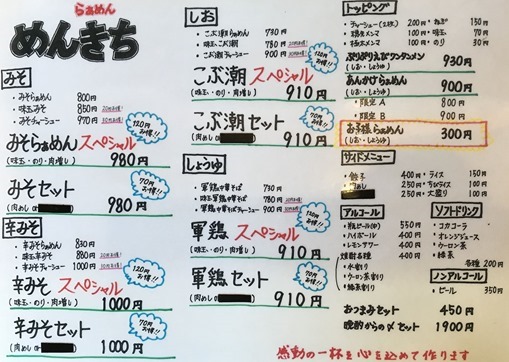 らぁめん
めんきち
みそ
・みそらぁめん 800円
・味玉みそ 850円
・みそチャーシュー 970円
120円お得!!
みそらぁめん スペシャル
(味玉・のり・肉増し) 980円
70円お得!!
みそセット
(肉めし or 980円
辛みそ
・辛みそらぁめん 830円
・味玉辛みそ 880円
・辛みそチャーシュー 1000円
120円お得!!
辛みそ スペシャル
(味玉・のり・肉増し) 1000円
70円お得!!
辛みそセット
(肉めし or 1000円
しお
・こぶ潮らぁめん 730円
・味玉こぶ潮 780円
・こぶ潮チャーシュー 900円
120円お得!!
こぶ潮 スペシャル
(味玉・のり・肉増し) 910円
70円お得!!
こぶ潮 セット
(肉めし or 910円
しょうゆ
・軍鶏中華そば 730円
・味玉中華そば 780円
・軍鶏中華そばチャーシュー 900円
120円お得!!
軍鶏 スペシャル
(味玉・のり・肉増し) 910円
70円お得!!
軍鶏 セット
(肉めし or 910円
トッピング
・チャーシュー(2枚) 200円 ・ねぎ 150円
・鶏先メンマ 100円 ・味玉 70円
・極太メンマ 100円 ・のり 30円
ぷりぷりえびワンタンメン
(しお・しょうゆ) 930円
あんかけらぁめん 900円
・限定 A 800円
・限定 B 900円
お子様らぁめん
(しお・しょうゆ) 300円
サイドメニュー
・餃子 400円 ・ライス 150円
250円 ・ちびライス 100円
250円 ・大盛り 100円
アルコール
・瓶ビール(中) 550円
・ハイボール 400円
・レモンサワー 400円
・焼酎各種 400円
・水割り
・ウーロン茶割り
・緑茶割り
ソフトドリンク
・コカコーラ
・オレンジジュース
・ウーロン茶
・緑茶
各種 200円
ノンアルコール
・ビール 350円
おつまみセット 450円
晩酌からの〆セット 1900円
感動の一杯を心を込めて作ります